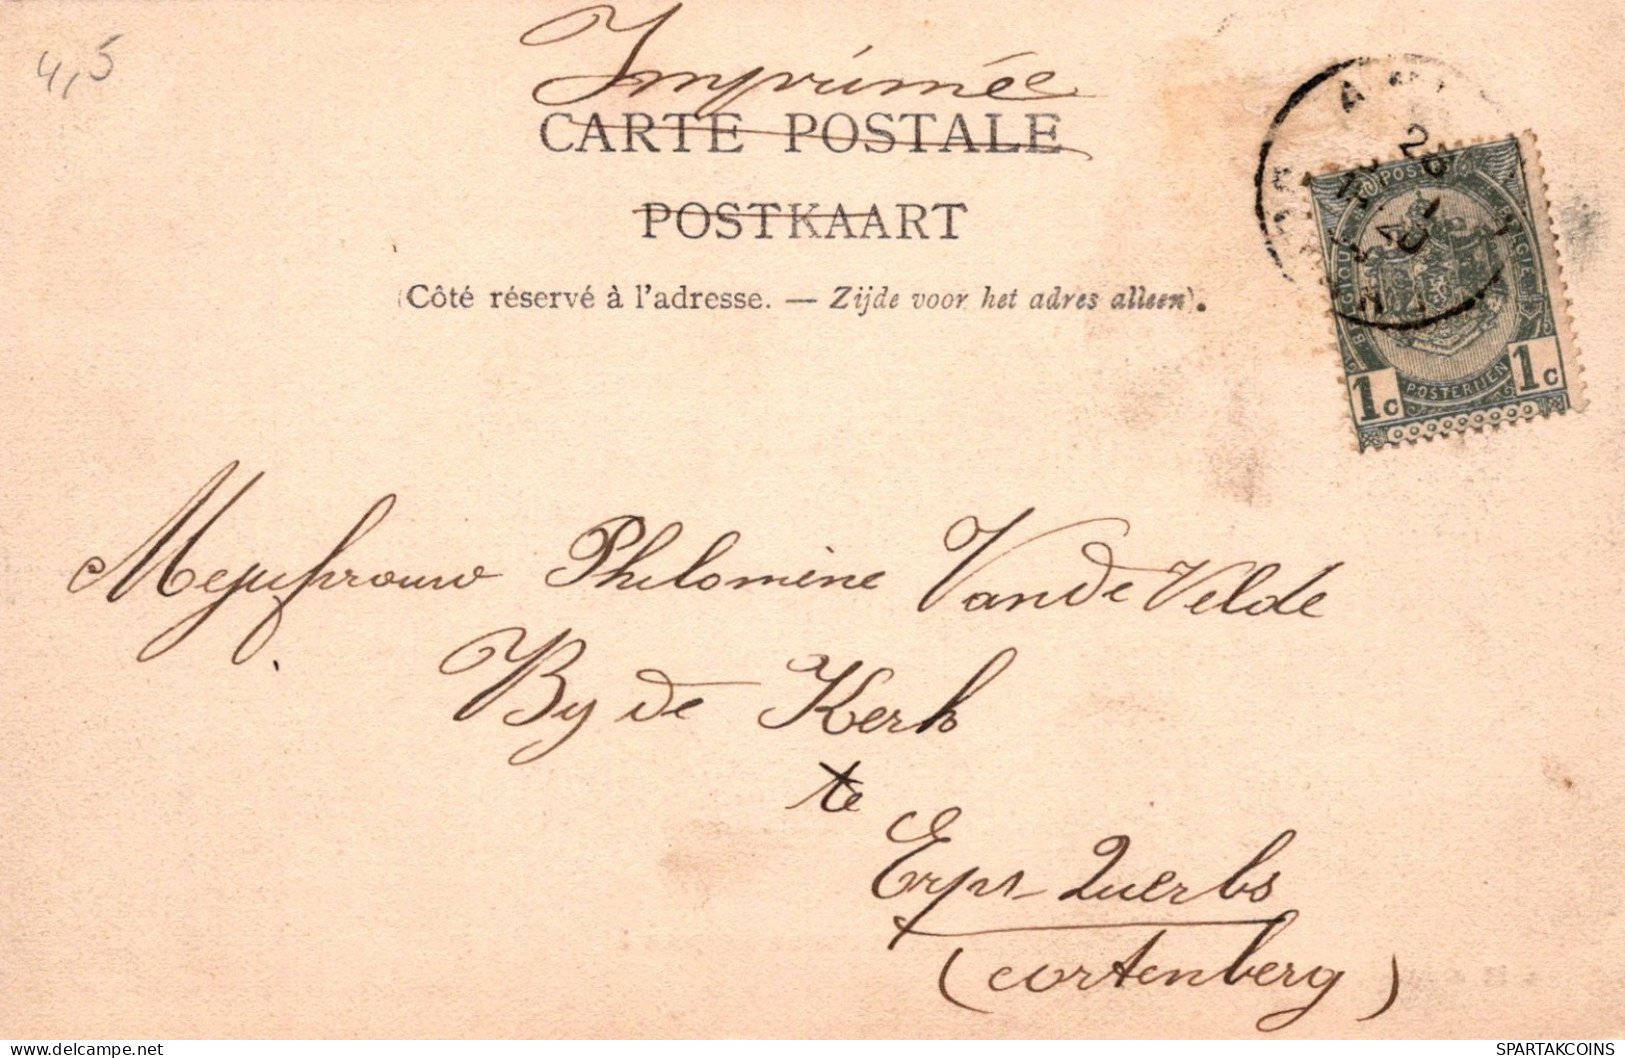 4,5
Imprimée
CARTE POSTALE
POSTKAART
(Côté réservé à l'adresse. — Zijde voor het adres alleen).
POSTERIJEN
1c 1c
Mejufrouw Philomène Van de Velde
By de Kerk
te
Erps-Querbs
(Cortenberg)
SPARTAKCOINS